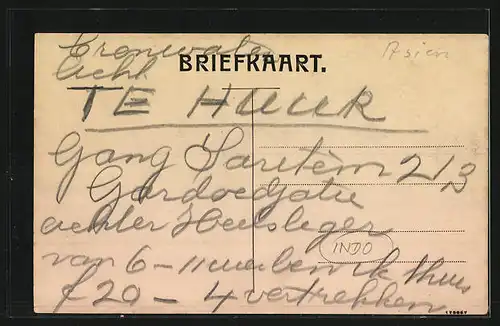 Asien
licht
BRIEFKAART.
TE Huur
Gang Saritèm 213
Gardoedjatie
achter Heilsleger
INDO
van 6 – 11 uur ben ik thuis
f 20 – 4 vertrekken